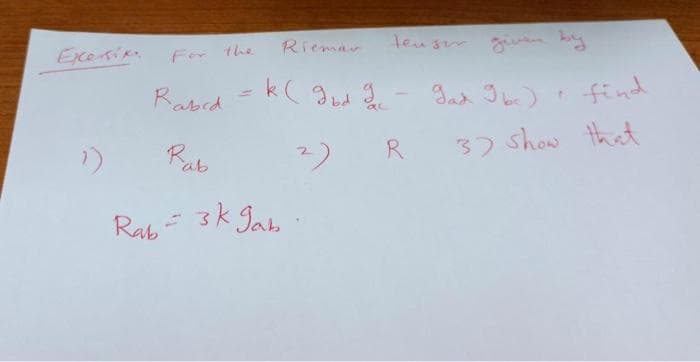 Exersise For the Rieman tensor given by
R_abcd = k( g_bd g_ac - g_ad g_bc ) , find
1) R_ab 2) R 3) show that
R_ab = 3k g_ab .